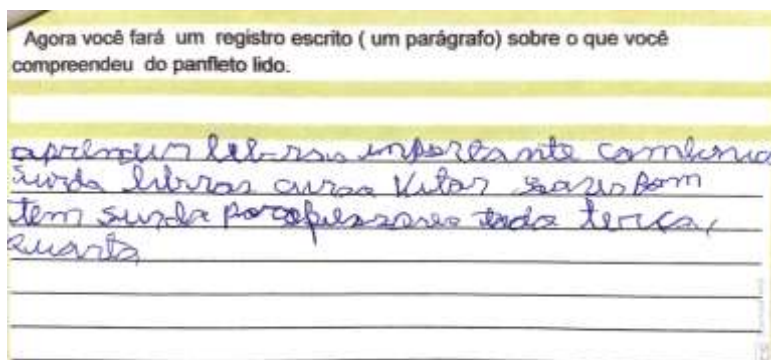 Agora você fará um registro escrito ( um parágrafo) sobre o que você
compreendeu do panfleto lido.
aprender libras importante
surda libras curso Vitor bom
tem surda toda terça,
quarta